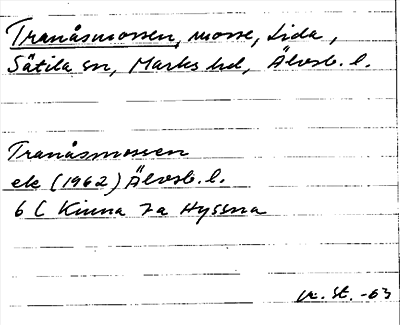 Tranåsmossen, mosse, Lida,
Sätila sn, Marks hd, Älvsb. l.
Tranåsmossen
ek (1962) Älvsb. l.
6 C Kinna 7a Hyssna
St. -63